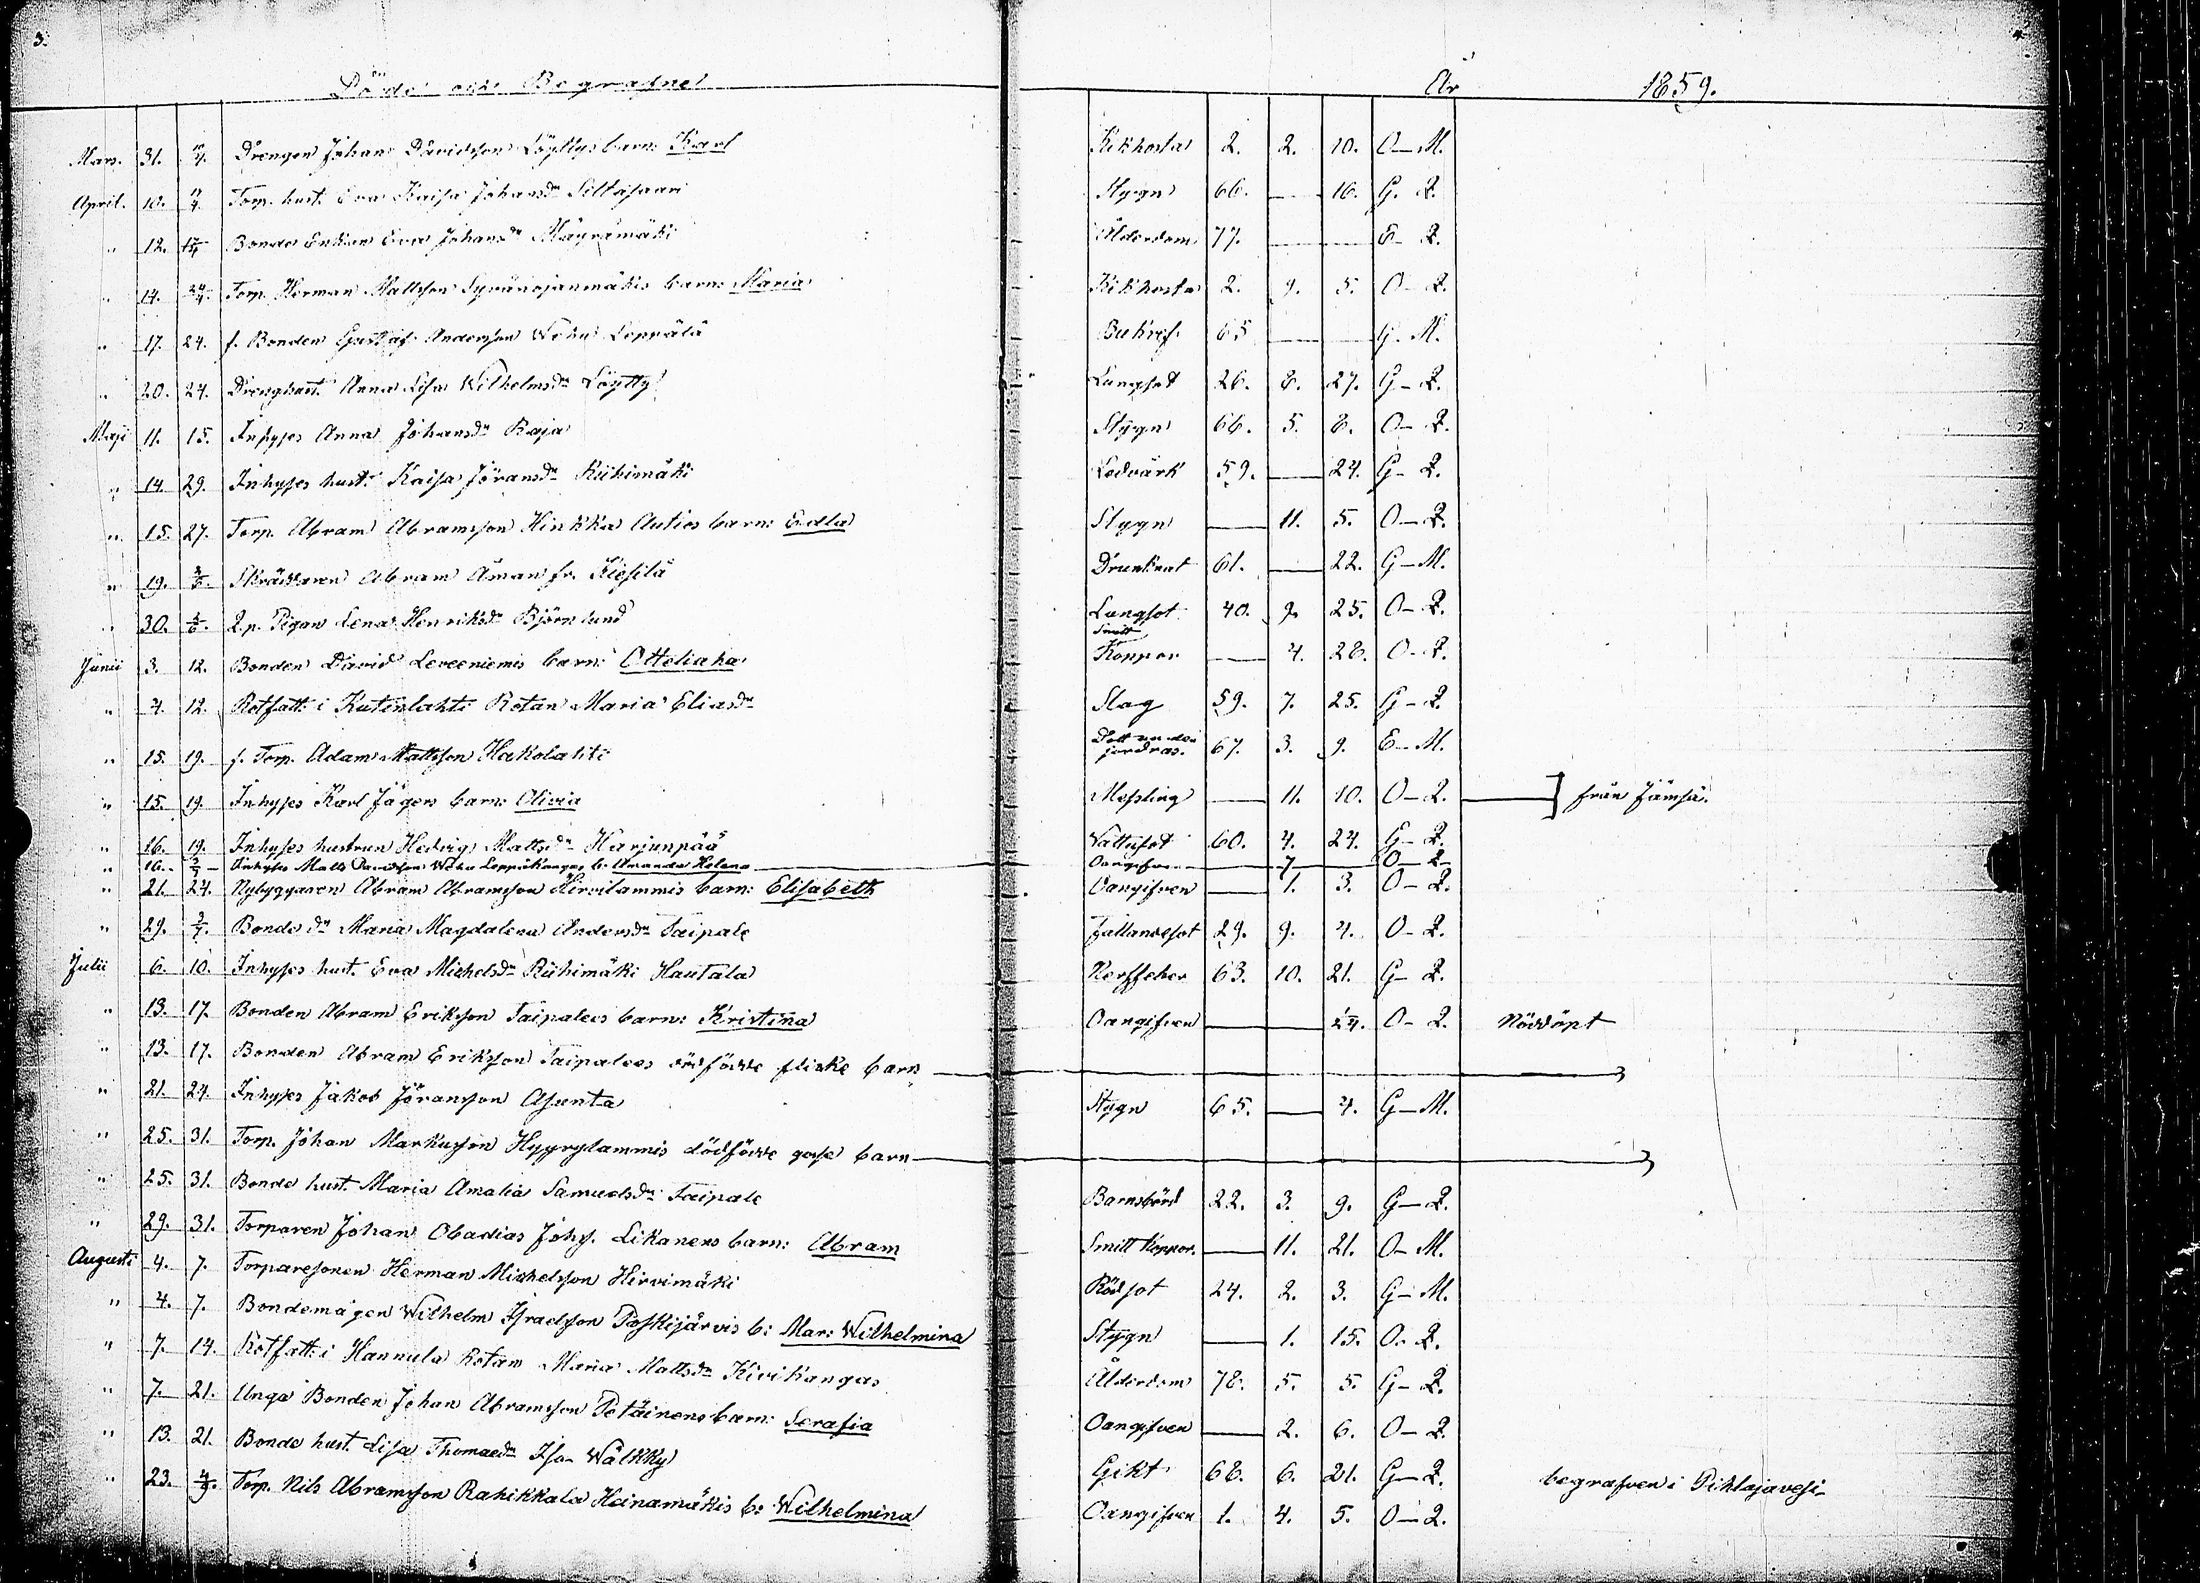 3.
Döde och Begrafne År 1859.
Mars. 31. 17/4. Drengen Johan Davidsson Löyttys barn: Karl Kikhosta 2. 2. 10. O-M.
April. 10. 17/4 Torp. hust. Eva Kaisa Johansdr Siltasaari Stygn 66. — 16. G. Q.
" 12. 17/4 Bonde Enkan Eva Johansdr Mäyrämäki Ålderdom 77. — E- Q.
" 14. 24/4. Torp. Herman Mattsson Syvänojanmäkis barn: Maria Kikhosta 2. 9. 5. O- Q.
" 17. 24. f. Bonden Gustaf Andersson Wehu Leppälä Bukref. 65 — G. M.
" 20. 24. Drenghust. Anna Lisa Wilhelmsdr Löytty Lungsot 26. 8. 27. G- Q.
Maji 11. 15. Inhyses Anna Johansdr Raja Stygn 66. 5. 8. O- Q.
" 14. 29. Inhyses hust. Kaisa Jöransdr Riihimäki Ledvärk 59. — 24. G- Q.
" 15. 27. Torp. Abram Abramsson Hinkka Autios barn: Edla Stygn — 11. 5. O- Q.
" 19. Skräddaren Abram Åman fr. Kiesilä Drunknat 61. — 22. G-M.
" 30. 5/6. Q.p. Pigan Lena Henriksdr Björnlund Lungsot 40. 9. 25. O- Q.
Junii 3. 12. Bonden David Leveeniemis barn: Otteliaha Smitt Koppor — 4. 28. O- Q.
" 4. 12. Rotfatt. i Kutemlahti Rotan Maria Eliasdr Slag 59. 7. 25. G- Q.
" 15. 19. f. Torp. Adam Mattsson Hakolahti jordras. 67. 3. 9. E-M.
" 15. 19. Inhyses Karl Jägers barn: Olivia Messling — 11. 10. O- Q. — ] från Jämsä.
" 16. 19. Inhyses hustrun Hedvig Mattsdr Harjunpää Vattusot 60. 4. 24. G- Q.
" 16. 3/7 Inhyses Matts Davidsson Wehu Leppäkangas b: Amanda Helena Oangifven 7 O- Q
" 21. 24. Nybyggaren Abram Abramsson Hirvilammis barn: Elisabeth Oangifven — 1. 3. O- Q.
" 29. 3/7. Bonde dr Maria Magdalena Andersdr Taipale Fallandesot 29. 9. 4. O- Q.
Julii 6. 10. Inhyses hust. Eva Michelsdr Riihimäki Hautala Nerffeber 63. 10. 21. G- Q.
" 13. 17. Bonden Abram Eriksson Taipales barn: Kristina Oangifven — O- Q. Nöddöpt
" 13. 17. Bonden Abram Eriksson Taipales dödfödde flicke barn —
" 21. 24. Inhyses Jakob Jöransson Asunta Stygn 65. — 4. G-M.
" 25. 31. Torp. Johan Markusson Hyyrylammis dödfödde gosse barn —
" 25. 31. Bonde hust. Maria Amalia Samuelsdr Taipale Barnsbörd 22. 3. 9. G- Q.
" 29. 31. Torparen Johan Obadias Johs. Likanens barn: Abram Smitt Koppor. — 11. 21. O- M.
Augusti 4. 7. Torparesonen Herman Michelsson Hirvimäki Rödsot 24. 2. 3. G- M.
" 4. 7. Bondemågen Wilhelm Israelsson Poskijärvis b: Mar: Wilhelmina Stygn — 1. 15. O- Q.
" 7. 14. Rotfatt. i Hannula Rotan Maria Mattsdr Kivikangas Ålderdom 78. 5. 5. G- Q.
" 7. 21. Unga Bonden Johan Abramsson Petäinens barn: Serafia Oangifven — 2. 6. O- Q.
" 13. 21. Bonde hust. Lisa Thomaedr Iso Wälkky Gikt 68. 6. 21. G- Q. begrafven i Pihlajavesi
" 23. 4/9. Torp. Nils Abramsson Rahikkala Heinamäkis b: Wilhelmina Oangifven 1. 4. 5. O- Q.